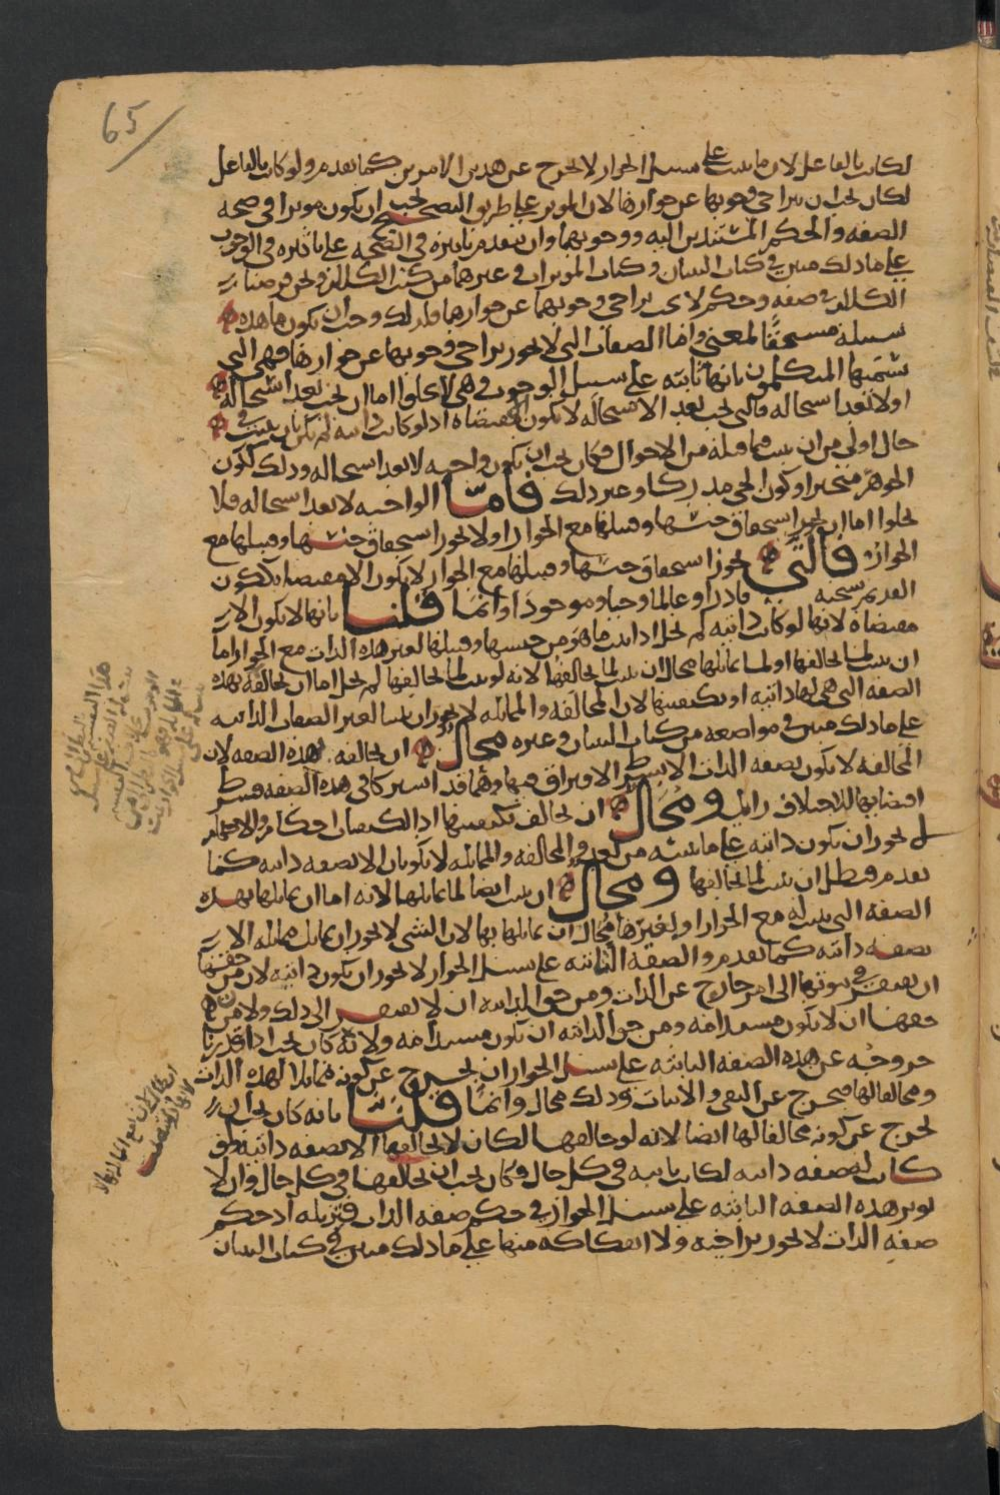 65
لكانت بالفاعل لان ما يثبت على سبيل الجواز لا يخرج عن هذين الامرين كما تقدم ولو كانت بالفاعل
لكان يجب ان يتراخى وجوبها عن جوازها لان المؤثر على طريق التصحيح يجب ان يكون مؤثرا في صحة
الصفة والحكم المستندين اليه ووجوبهما وان يتقدم تاثيره في الصحة على تاثيره في الوجوب
على ما ذلك مبين في كتاب البيان وكتاب المؤثرات وغيرهما من كتب الكلام ونحن فرضنا
الكلام في صفة وحكم لا يتراخى وجوبهما عن جوازهما فلذلك وجب ان يكون ما هذه
سبيله مستحقا لمعنى واما الصفات التي لا يجوز تراخي وجوبها عن جوازها فهي التي
يسميها المتكلمون بانها ثابتة على سبيل الوجوب وهي لا تخلوا اما ان تجب بعد استحالة
او لا بعد استحالة فالتي تجب بعد الاستحالة لا تكون الا مقتضاة اذ لو كانت ذاتية لم تكن بان تثبت في
حال اولى من ان تثبت فيما قبله من الاحوال فكان يجب ان تكون واجبة لا بعد استحالة وذلك ككون
الجوهر متحيزا وكون الحي مدركا وغير ذلك فاما الواجبة لا بعد استحالة فلا
تخلوا اما ان يجوز استحقاق جنسها وقبيلها مع الجواز او لا يجوز استحقاق جنسها وقبيلها مع
الجواز فالتي يجوز استحقاق جنسها وقبيلها مع الجواز لا تكون الا مقتضاة ككون
القديم سبحنه قادرا وعالما وحيا وموجودا وانما قلنا بانها لا تكون الا
مقتضاة لانها لو كانت ذاتية لم يخل اذا ثبت ما هو من جنسها وقبيلها لغير هذه الذات مع الجواز اما
ان يثبت لما يخالفها او لما يماثلها محال ان يثبت لما يخالفها لانه لو ثبت لما يخالفها لم يخل اما ان يخالفه بهذه
الصفة التي هي لها ذاتية او بكيفيتها لان المخالفة والمماثلة لا يجوز ان يثبتا لغير الصفات الذاتية
على ما ذلك مبين في مواضعه من كتاب البيان وغيره محال ان يخالفه بهذه الصفة لان
المخالفة لا تكون بصفة الذات الا بشرط الافتراق فيها وهما قد اشتركا في هذه الصفة فبطل
اقتضاؤها للاختلاف ومحال ان يخالف بكيفيتها اذ الكيفيات احكام والاحكام
لا يجوز ان تكون ذاتية على ما نبينه من بعد والمخالفة والمماثلة لا يكونان الا بصفة ذاتية كما
تقدم فبطل ان يثبت لما يخالفها ومحال ان يثبت ايضا لما يماثلها لانه اما ان يماثلها بهذه
الصفة التي يثبت له مع الجواز او بغيرها محال ان يماثلها بها لان الشي لا يجوز ان يماثل مماثله الا
بصفة ذاتية كما تقدم والصفة الثابتة على سبيل الجواز لا يجوز ان تكون ذاتية لان من حقها
ان تفتقر في ثبوتها الى امر خارج عن الذات ومن حق الذاتية ان لا تفتقر الى ذلك ولان من
حقها ان لا تكون مستدامة ومن حق الذاتية ان تكون مستدامة ولانه كان يجب اذا قدرنا
خروجه عن هذه الصفة الثابتة على سبيل الجواز ان يخرج عن كونه مماثلا لهذه الذات
ومخالفا لها فيخرج عن النفي والاثبات وذلك محال وانما قلنا بانه كان يجب ان
يخرج عن كونه مخالفا لها ايضا لانه لو خالفها لكان لا يخالفها الا بصفة ذاتية فلو
كانت لصفة ذاتية لكانت ثابتة في كل حال وكان يجب ان يخالفها في كل حال وان لا
تؤثر هذه الصفة الثابتة على سبيل الجواز في حكم صفة الذات فتزيله اذ حكم
صفة الذات لا يجوز تراخيه ولا انفكاكه منها على ما ذلك مبين في كتاب البيان